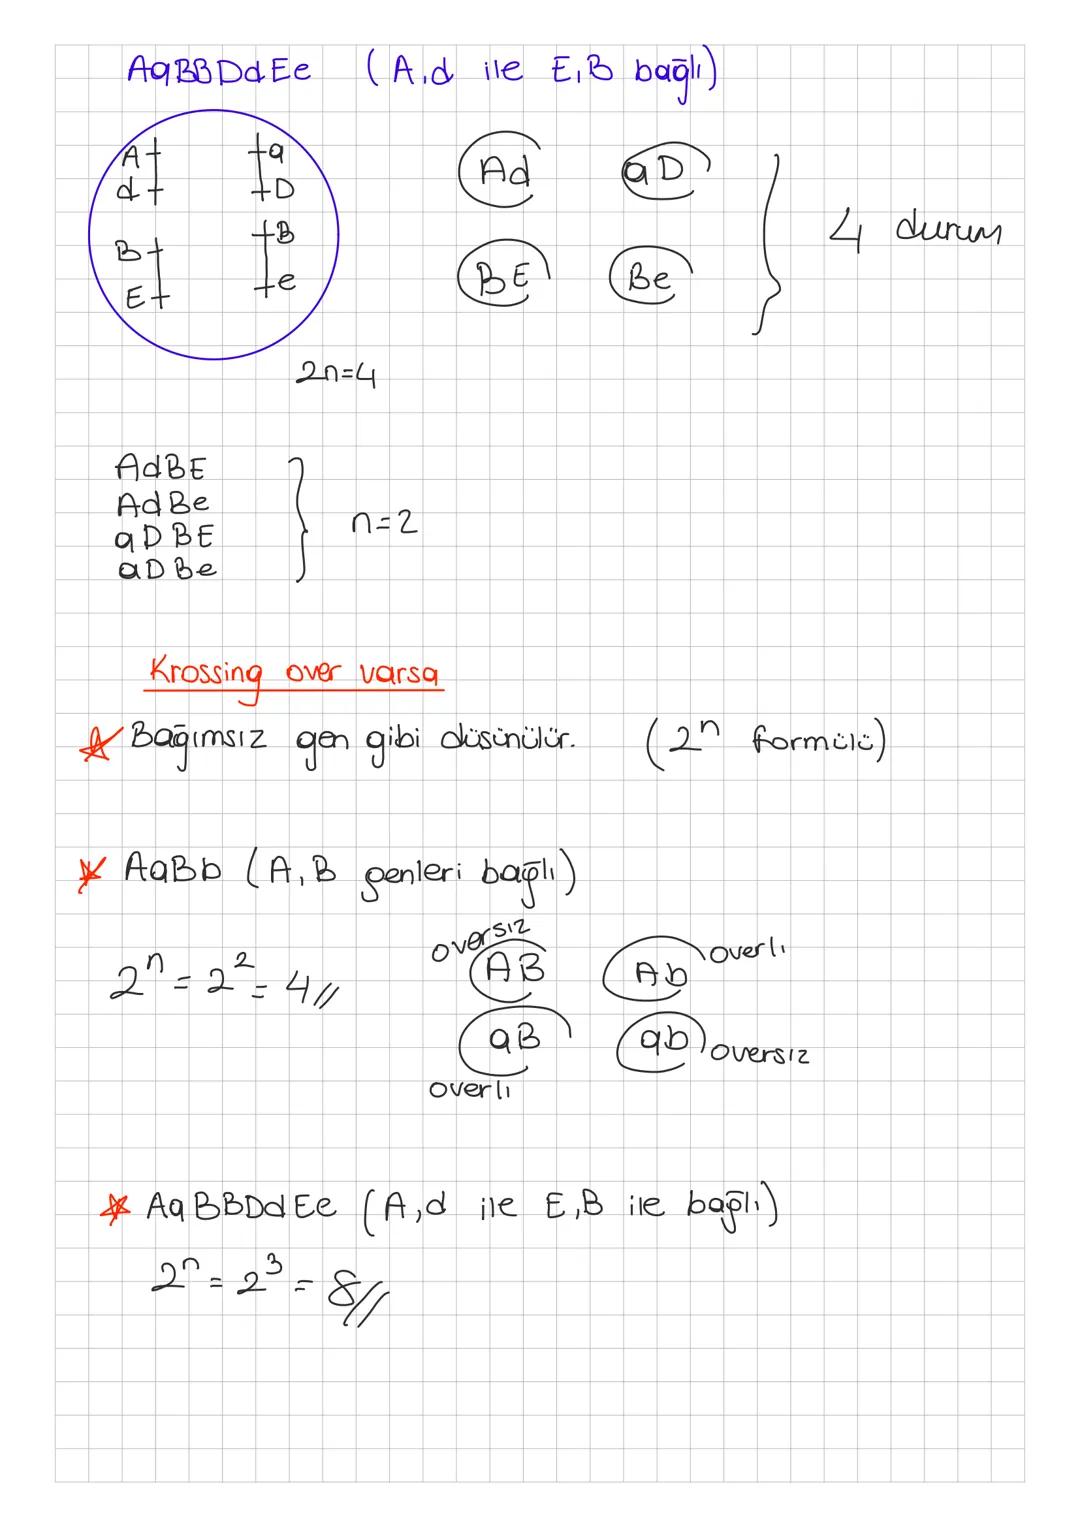 AaBBDdEe (A,d ile E,B bağlı)
A a
d D
B B
E e
Ad aD
BE Be
4 durum
2n=4
AdBE
AdBe
aDBE
aDBe
n=2
Krossing over varsa
Bağımsız gen gibi düşünülür. (2ⁿ formülü)
AaBb (A,B genleri bağlı)
2ⁿ = 2² = 4//
oversız
AB
Ab overlı
aB
overlı
ab oversız
AaBBDdEe (A,d ile E,B ile bağlı)
2ⁿ = 2³ = 8//